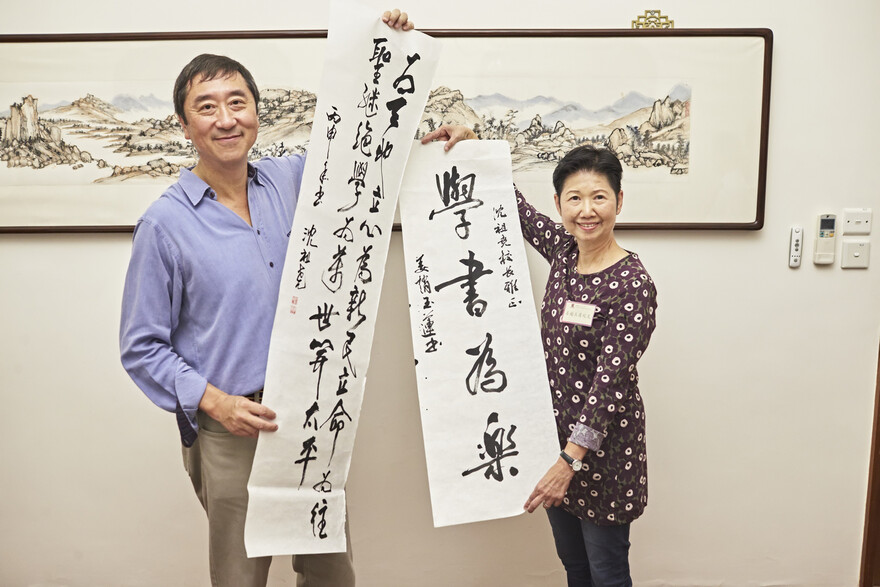 為天地立心為新民立命為往
聖繼絕學為萬世開太平
丙申 書 沈祖堯
沈祖堯校長雅正
學書為樂
玉蓮書